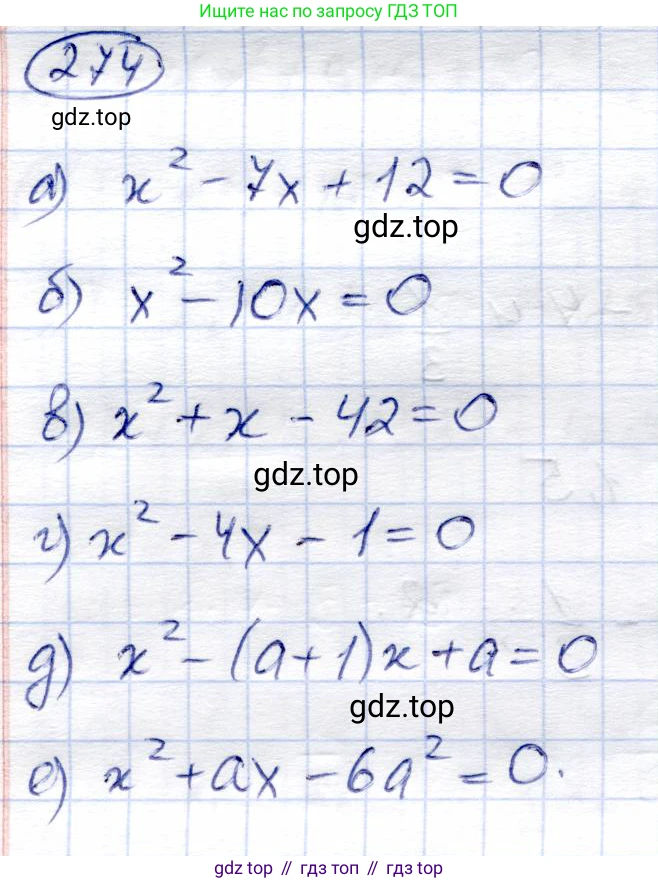 Ищите нас по запросу ГДЗ ТОП
274
gdz.top
а) x² - 7x + 12 = 0
gdz.top
б) x² - 10x = 0
в) x² + x - 42 = 0
gdz.top
г) x² - 4x - 1 = 0
д) x² - (a+1)x + a = 0
gdz.top
е) x² + ax - 6a² = 0.
gdz top // гдз топ // gdz top